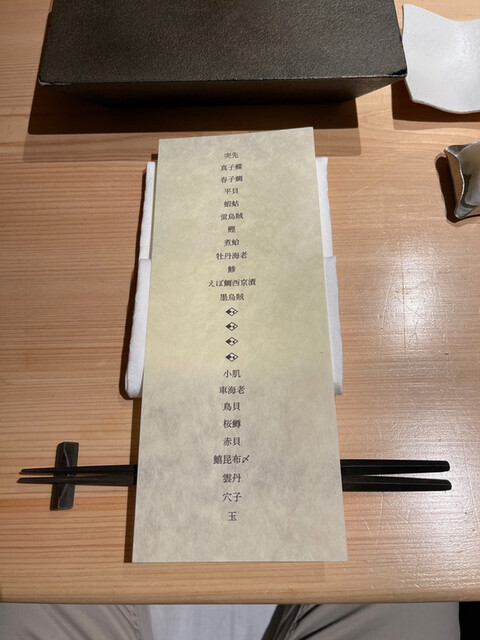 突先
真子鰈
春子鯛
平貝
蝦蛄
蛍烏賊
鰹
煮蛤
牡丹海老
鯵
えぼ鯛西京漬
墨烏賊
小肌
車海老
鳥貝
桜鱒
赤貝
鱚昆布〆
雲丹
穴子
玉